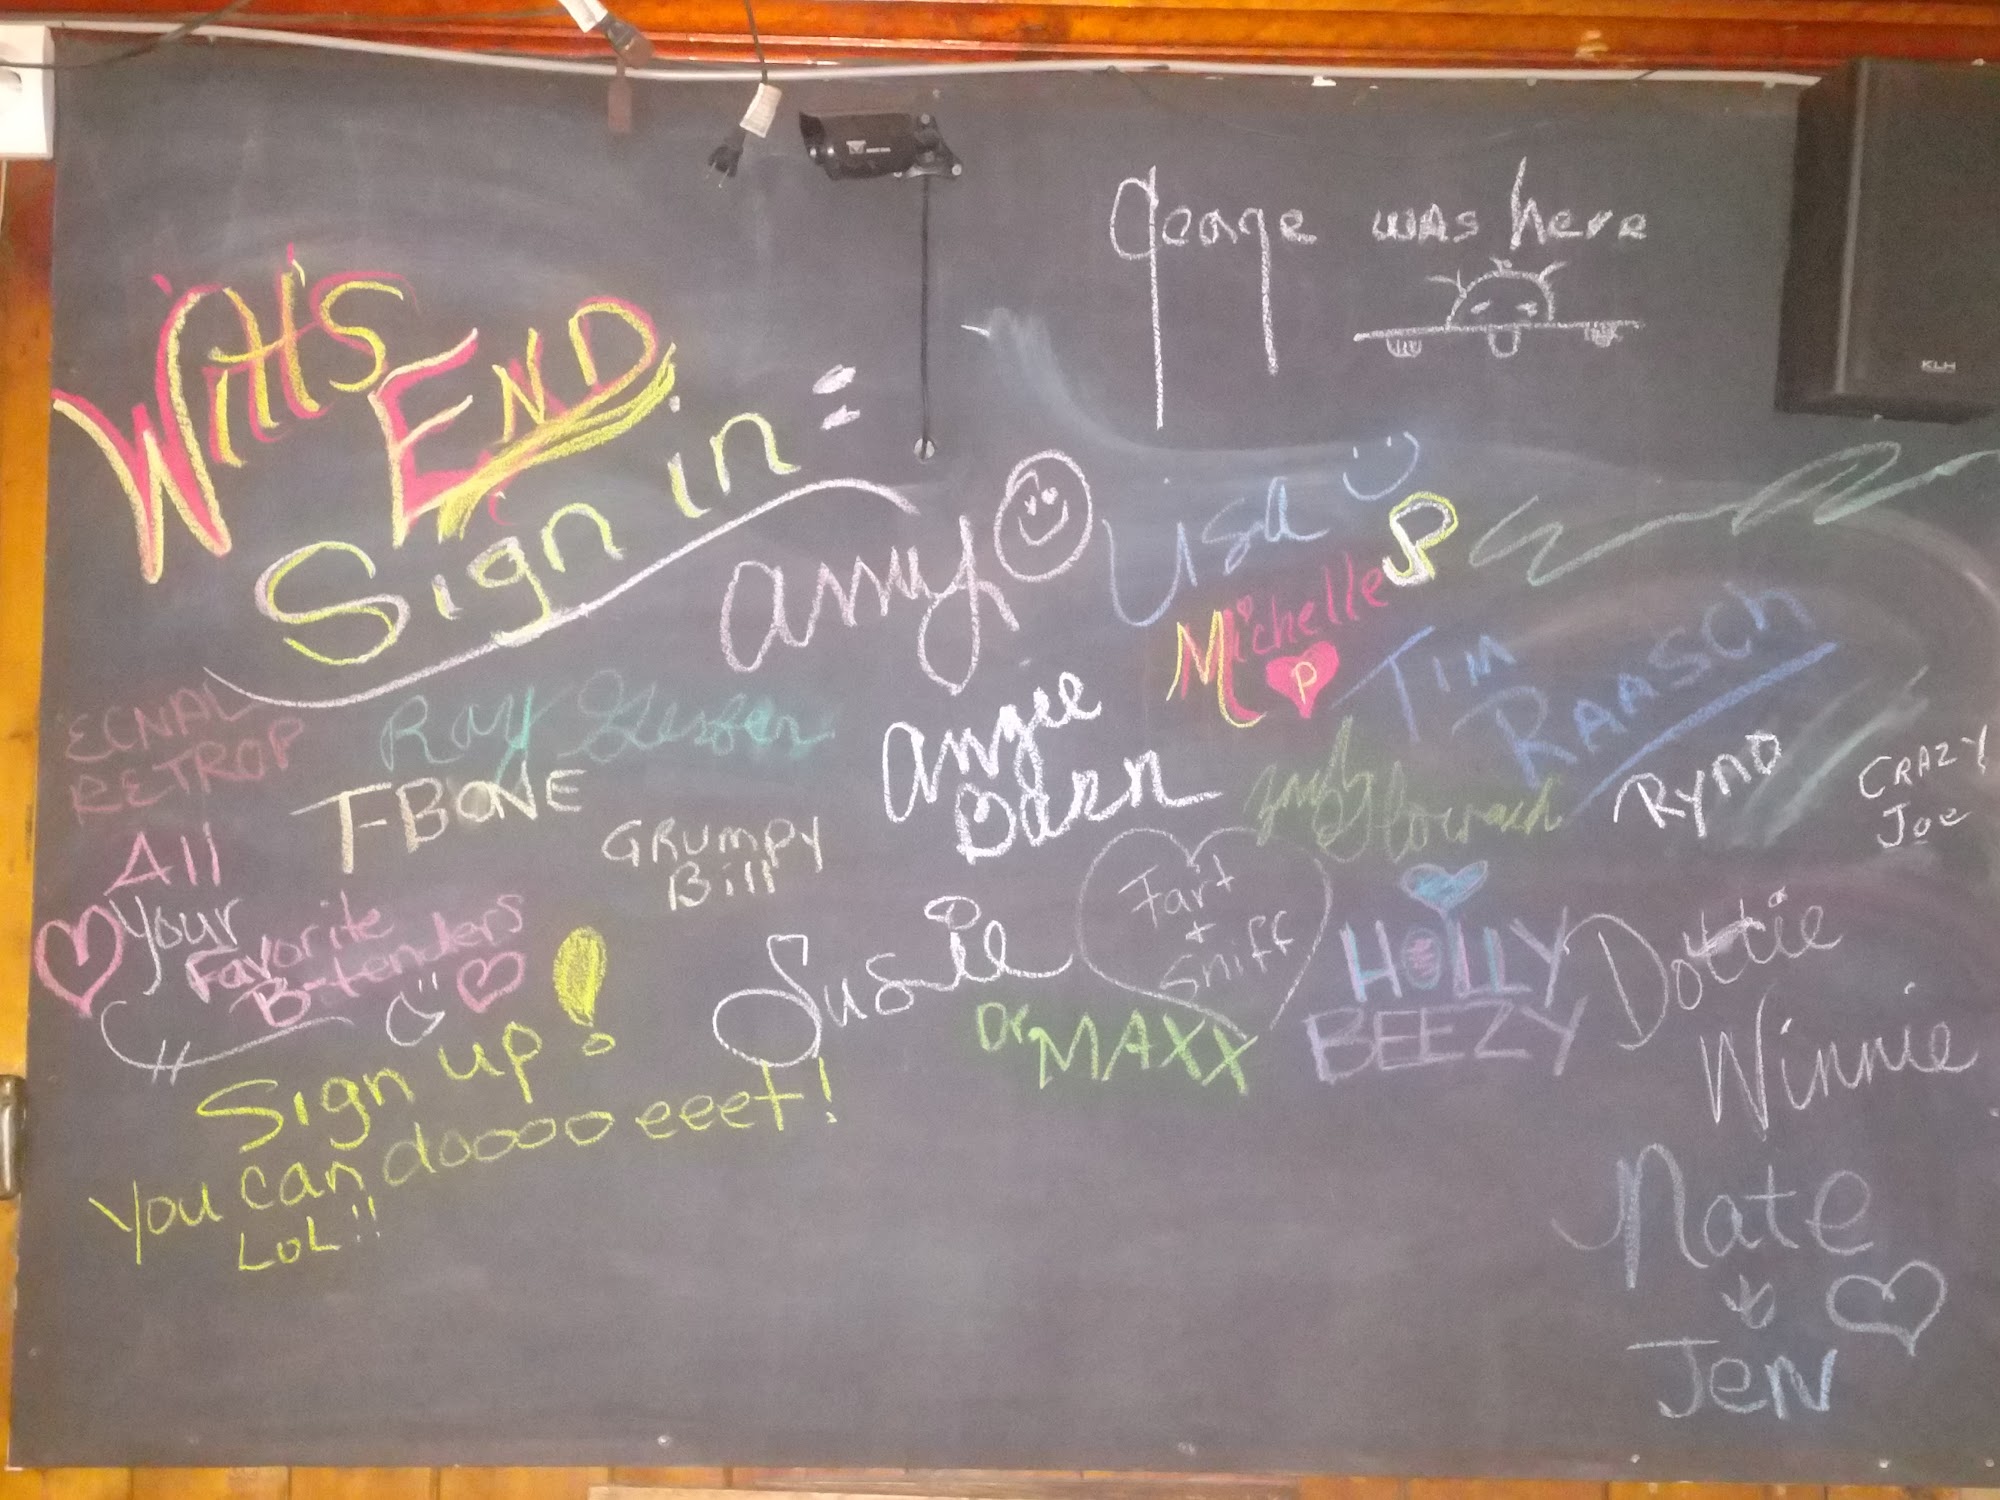 Geoage was here
KLH
Witt's
End
Sign in:
Amy
Lisa
Michelle P
P
Tim
Raasch
ECNAL
RETROP
Ray
T-BONE
Grumpy
Bill
Angie
Barn
Ryno
CRAZY
Joe
All
Your
Favorite
B-tenders
Susie
Fart
+
Sniff
Dr MAXX
HOLLY
BEEZY
Dottie
Winnie
Sign up!
You can dooooo eeeet!
LoL!!
Nate
&
Jen